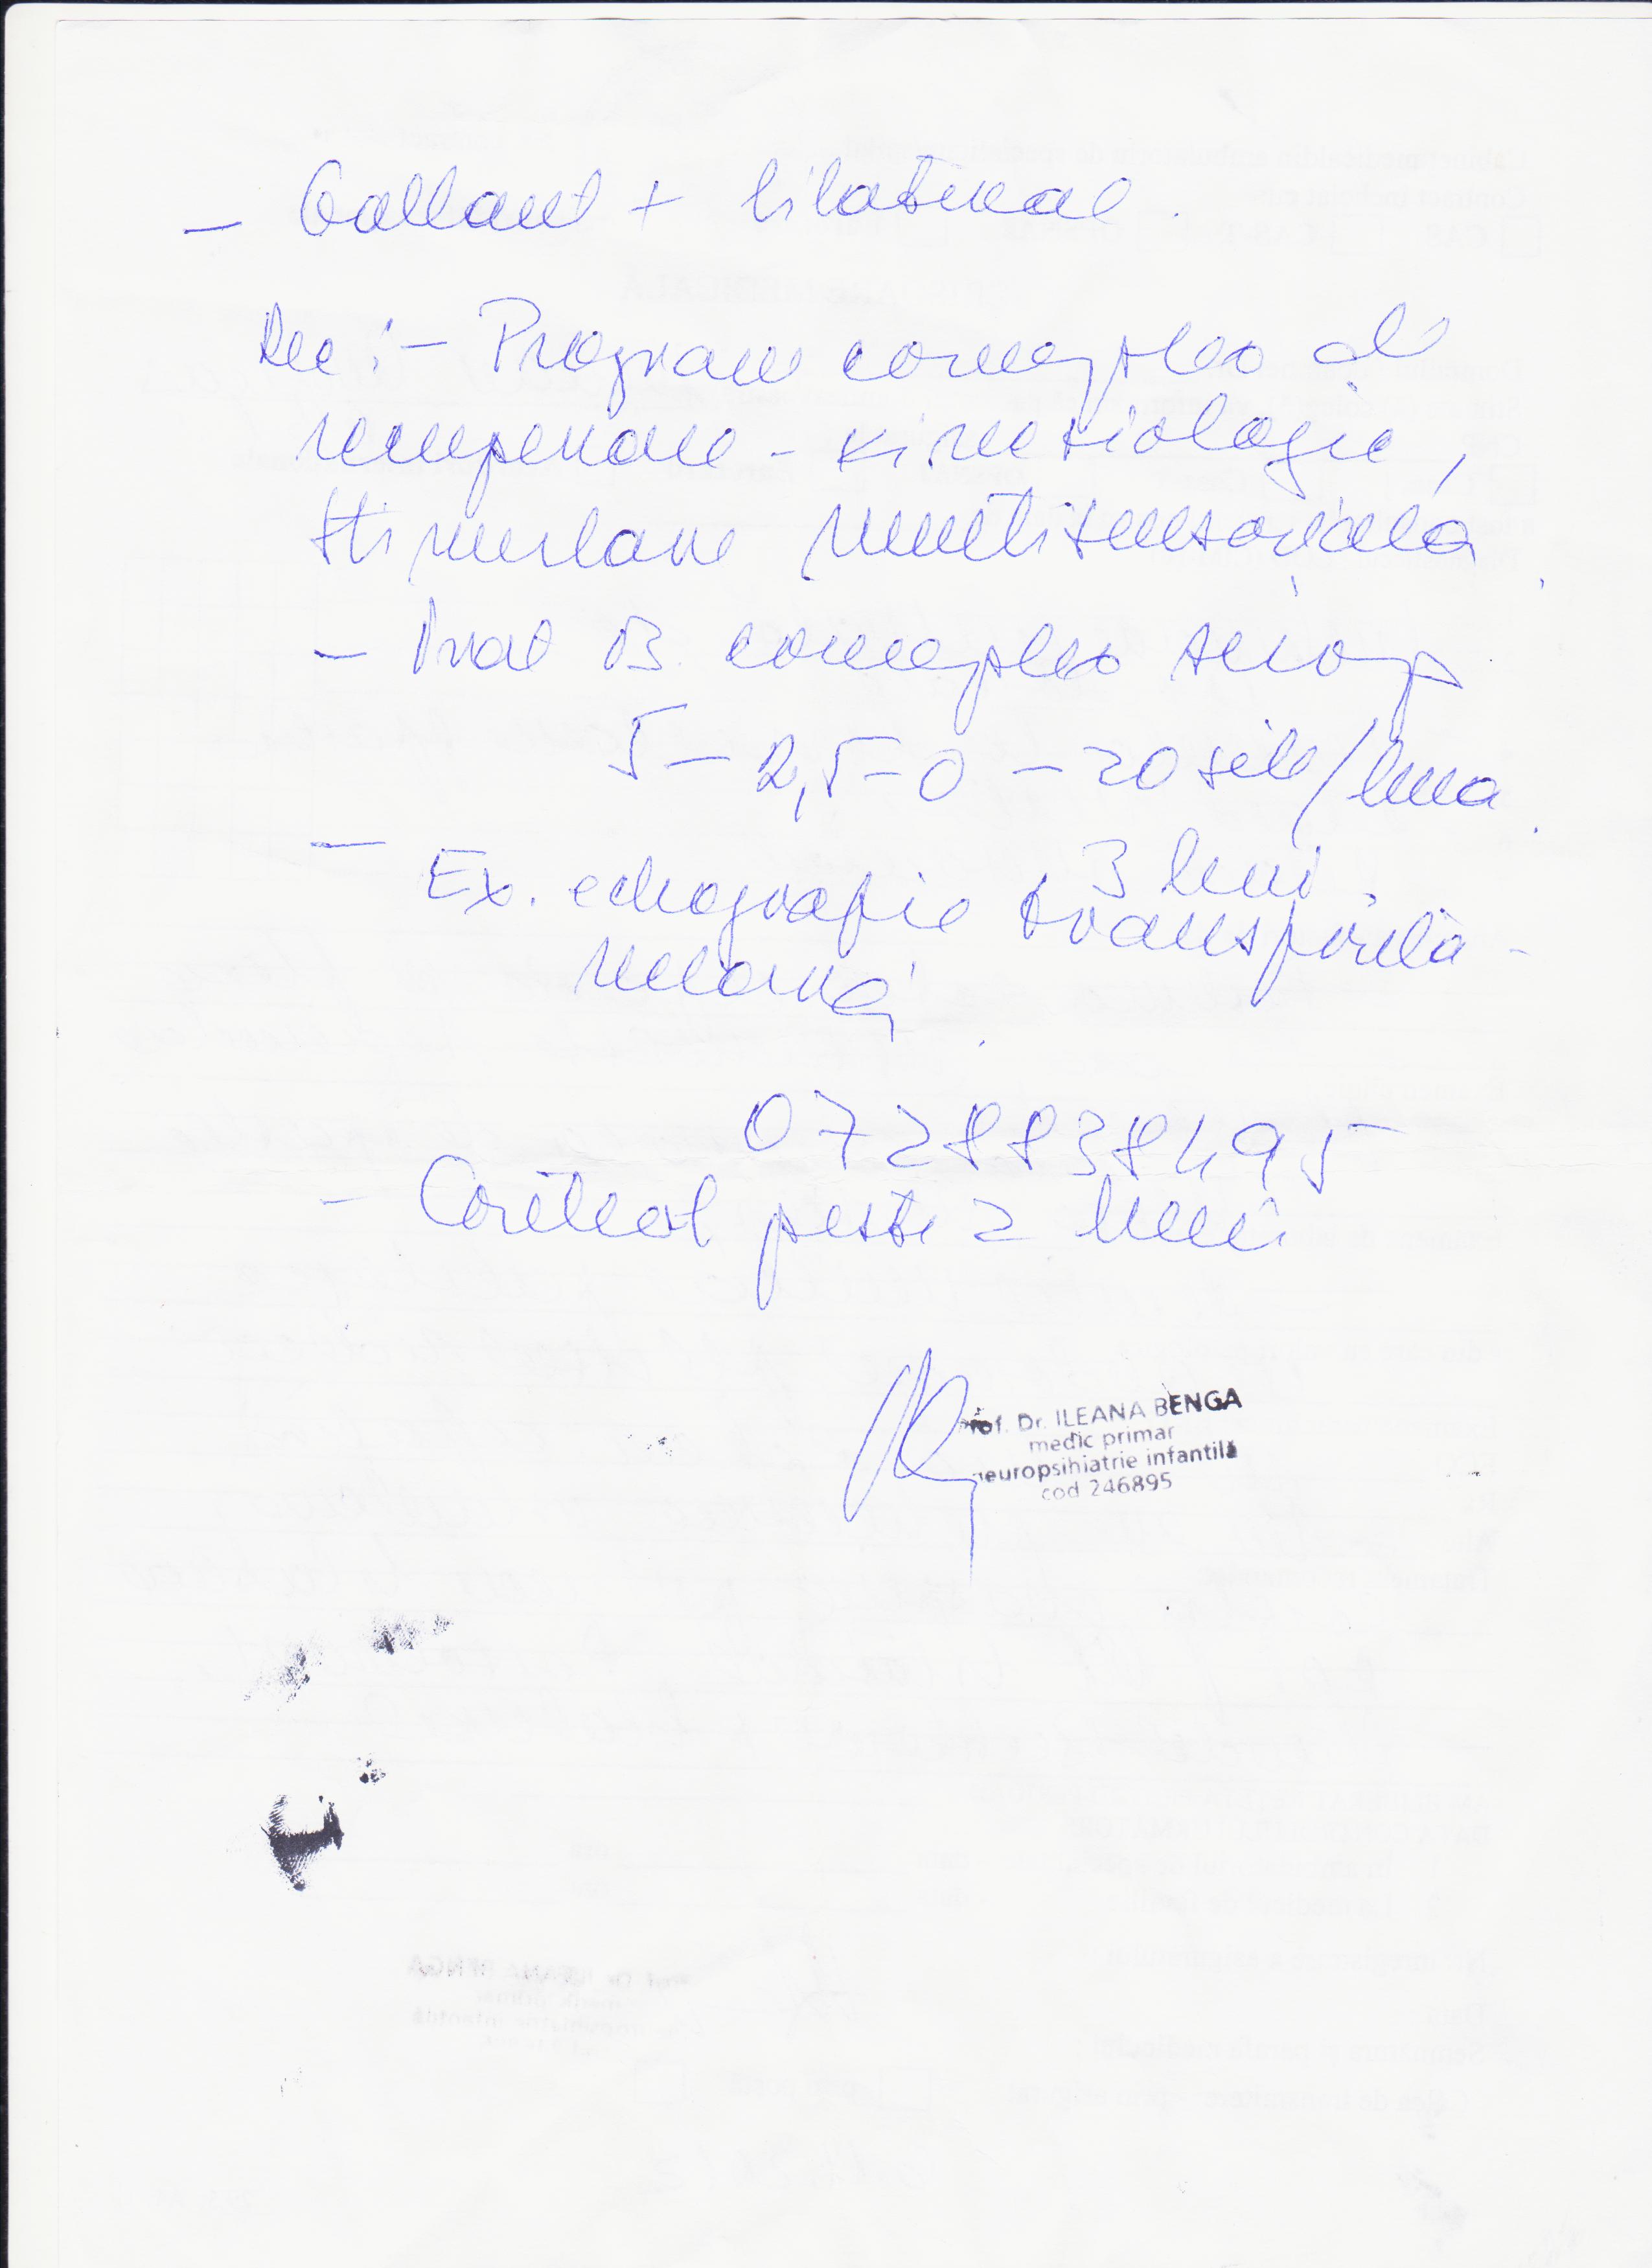 - Gallant + bilateral.
Rec: - Program complex de
recuperare - kinesiologie,
stimulare multisenzorială.
- B complex sirop
5 - 2,5 - 0 - 20 zile / luna.
3 luni.
- Ex. echografie transfonta-
nelară.
0728838495
- Control peste 2 luni
Prof. Dr. ILEANA BENGA
medic primar
neuropsihiatrie infantilă
cod 246895